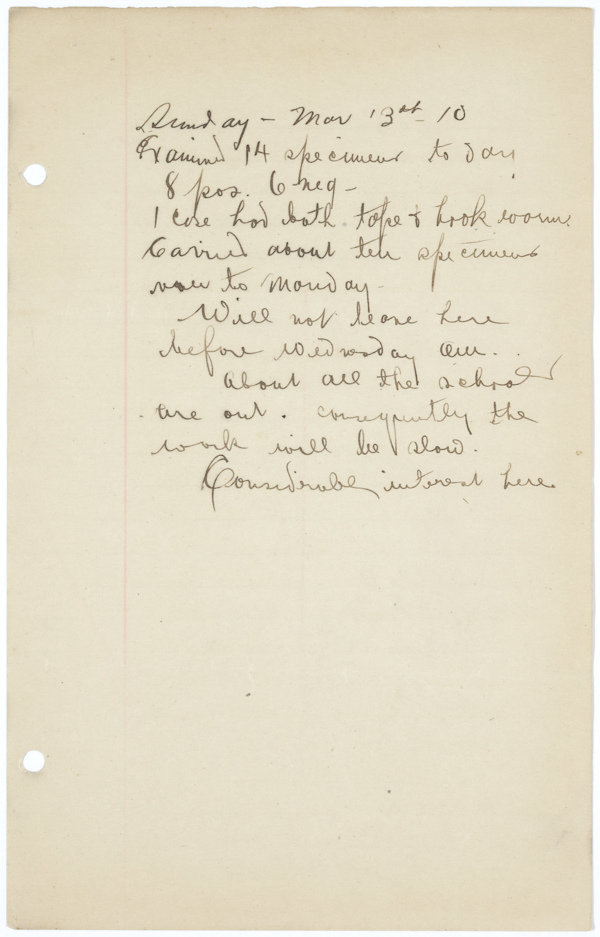 Sunday - Mar 13st - 10
Examined 14 specimens to day
8 pos. 6 neg -
1 case had both tape & hook worm.
Carried about ten specimens
over to Monday -
Will not leave here
before Wednesday am.
About all the schools
are out. consequently the
work will be slow.
Considerable interest here